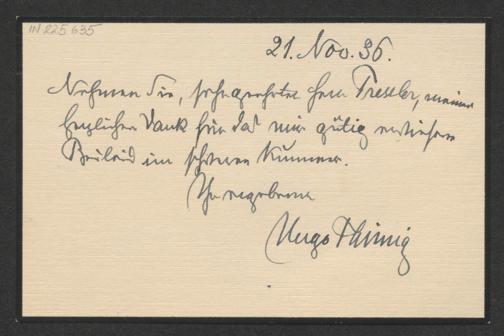 IN 225 635
21. Nov. 36.
Nehmen Sie, sehr geehrter Herr Tressler, meinen
herzlichen Dank für das mir gütig erwiesene
Beileid im schweren Kummer.
Ihr ergebener
Hugo Thimig